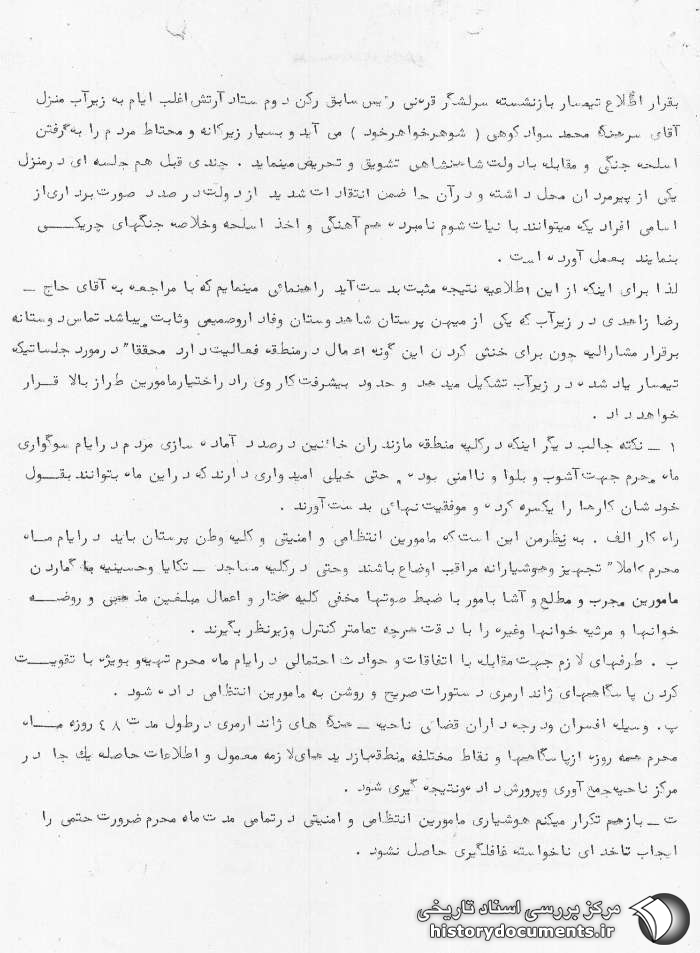 بقرار اطلاع تیمسار بازنشسته سرلشگر قرنی رئیس سابق رکن دوم ستاد آرتش اغلب ایام به زیرآب منزل
آقای سرهنگ محمد سوادکوهی ( شوهرخواهرخود ) می آید و بسیار زیرکانه و محتاط مردم را به گرفتن
اسلحه جنگی و مقابله با دولت شاهنشاهی تشویق و تحریض مینماید . چندی قبل هم جلسه ای در منزل
یکی از پیرمردان محل داشته و در آن جا ضمن انتقادات شدید از دولت در صدد صورت برداری از
اسامی افراد یکه میتوانند با نیات شوم نامبرده هم آهنگی و اخذ اسلحه وخلاصه جنگهای چریکی
بنمایند بعمل آورده است .
لذا برای اینکه از این اطلاعیه نتیجه مثبت بدست آید راهنمائی مینمایم که با مراجعه به آقای حاج ــ
رضا زاهدی در زیرآب که یکی از میهن پرستان شاهدوستان وفادار وصمیمی وثابت میباشد تماس دوستانه
برقرار مشارالیه چون برای خنثی کردن این گونه اعمال در منطقه فعالیت دارد محققا" در مورد جلساتیکه
تیمسار یاد شده در زیرآب تشکیل میدهد و حدود پیشرفت کار وی را در اختیار مامورین طراز بالا قرار
خواهد داد .
۱ ــ نکته جالب دیگر اینکه در کلیه منطقه مازندران خائنین درصدد آماده سازی مردم در ایام سوگواری
ماه محرم جهت آشوب و بلوا و ناامنی بوده ، حتی خیلی امیدواری دارند که در این ماه بتوانند بقول
خودشان کارها را یکسره کرده و موفقیت نهائی بدست آورند .
راه کار الف . به نظرمن این است که مامورین انتظامی و امنیتی و کلیه وطن پرستان باید در ایام ماه
محرم کاملا" تجهیز وهوشیارانه مراقب اوضاع باشند وحتی در کلیه مساجد ــ تکایا وحسینیه ها گماردن
مامورین مجرب و مطلع و آشنا بامور با ضبط صوتها مخفی کلیه گفتار و اعمال مبلغین مذهبی و روضه
خوانها و مرثیه خوانها وغیره را با دقت هرچه تمامتر کنترل وزیر نظر بگیرند .
ب . طرفهای لازم جهت مقابله با اتفاقات و حوادث احتمالی در ایام ماه محرم تهیه و بویژه با تقویت
کردن پاسگاههای ژاندارمری دستورات صریح و روشن به مامورین انتظامی داده شود .
پ. وسیله افسران ودرجه داران قضائی ناحیه ــ هنگ های ژاندارمری در طول مدت ۴۸ روزه ماه
محرم همه روزه از پاسگاهها و نقاط مختلفه منطقه بازدیدهای لازمه معمول و اطلاعات حاصله یك جا در
مرکز ناحیه جمع آوری وپرورش داده ونتیجه گیری شود .
ت ــ بازهم تکرار میکنم هوشیاری مامورین انتظامی و امنیتی در تمامی مدت ماه محرم ضرورت حتمی را
ایجاب تا خدای ناخواسته غافلگیری حاصل نشود .
مرکز بررسی اسناد تاریخی
historydocuments.ir